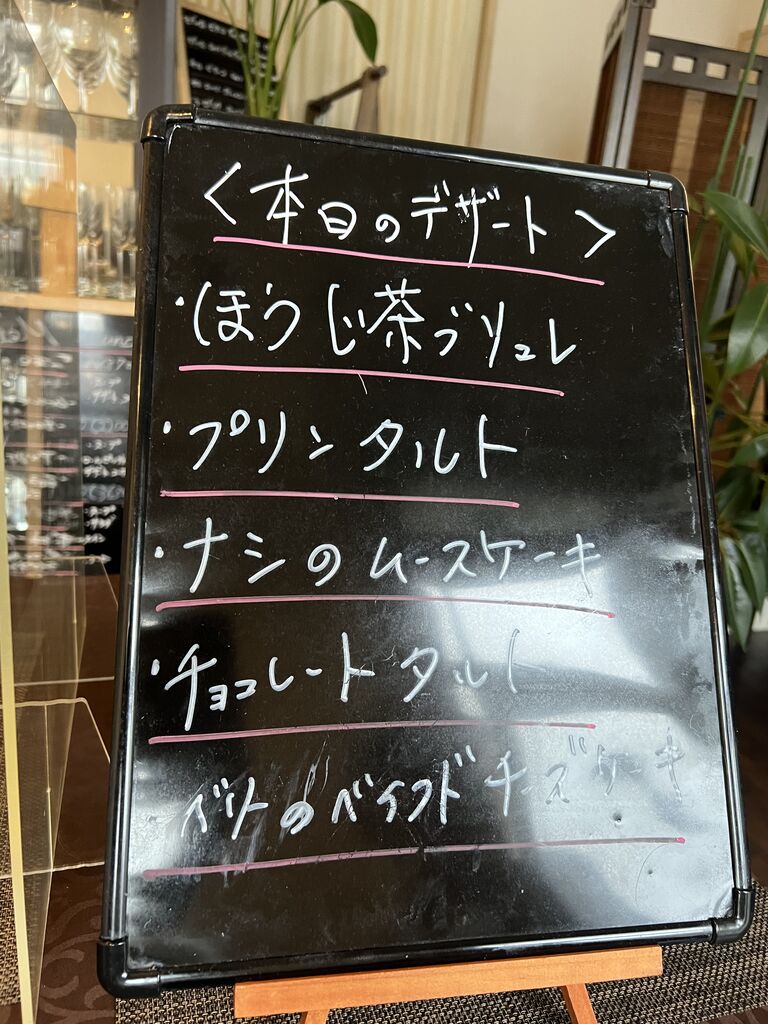 <本日のデザート>
・ほうじ茶ブリュレ
・プリンタルト
・ナシのムースケーキ
・チョコレートタルト
のベイクドチーズケーキ